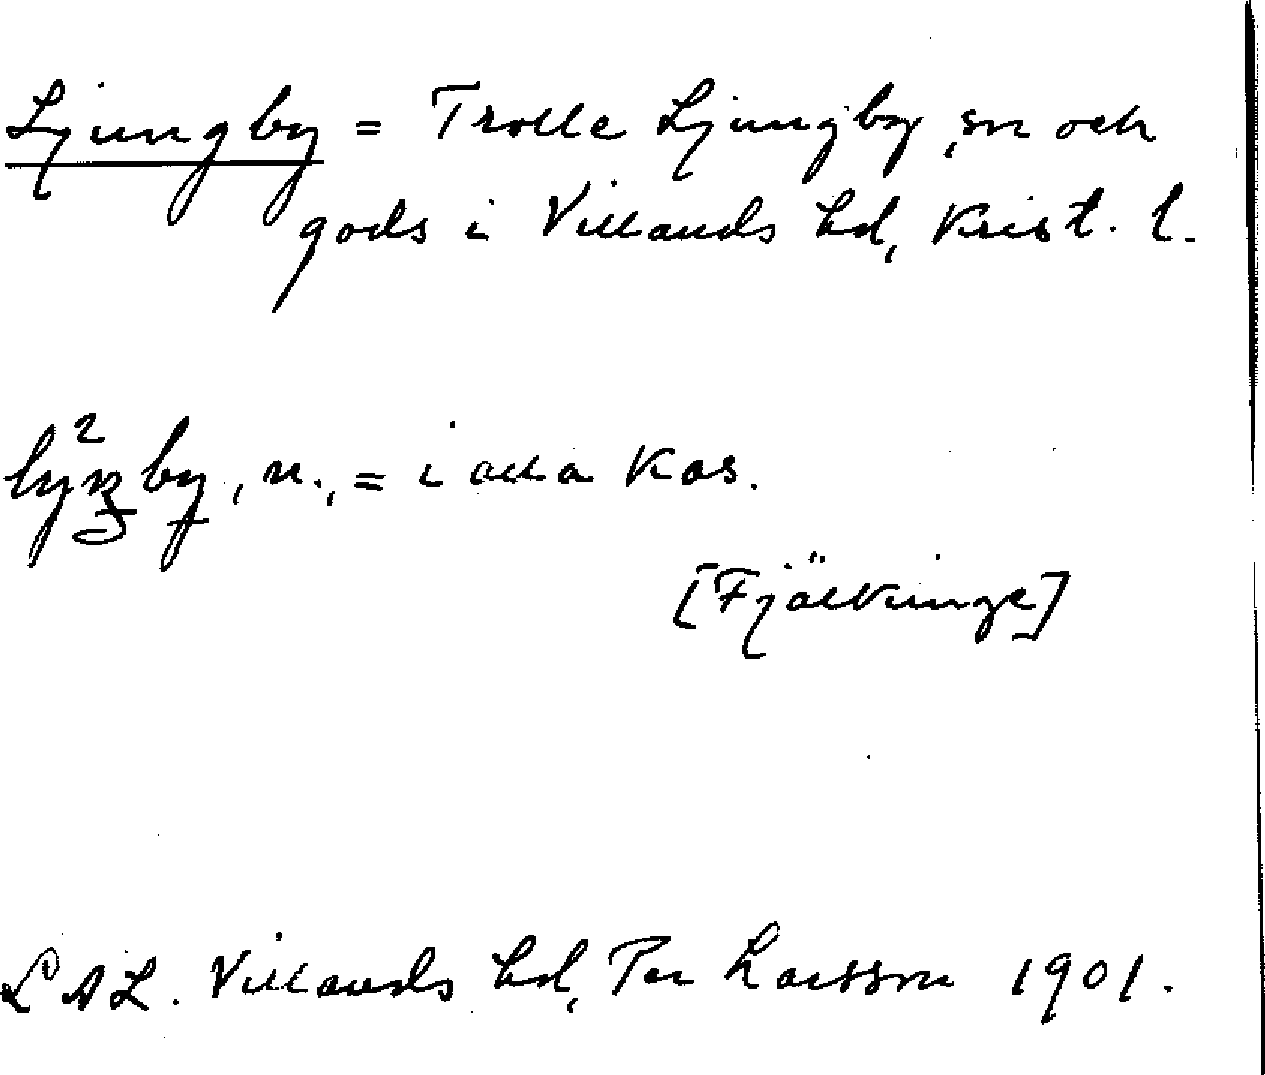 Ljungby = Trolle Ljungby, sn och
gods i Villands hd, Krist. l.
by, n., = i alla kas.
[Fjälkinge]
LAL. Villands hd, Per Larsson 1901.